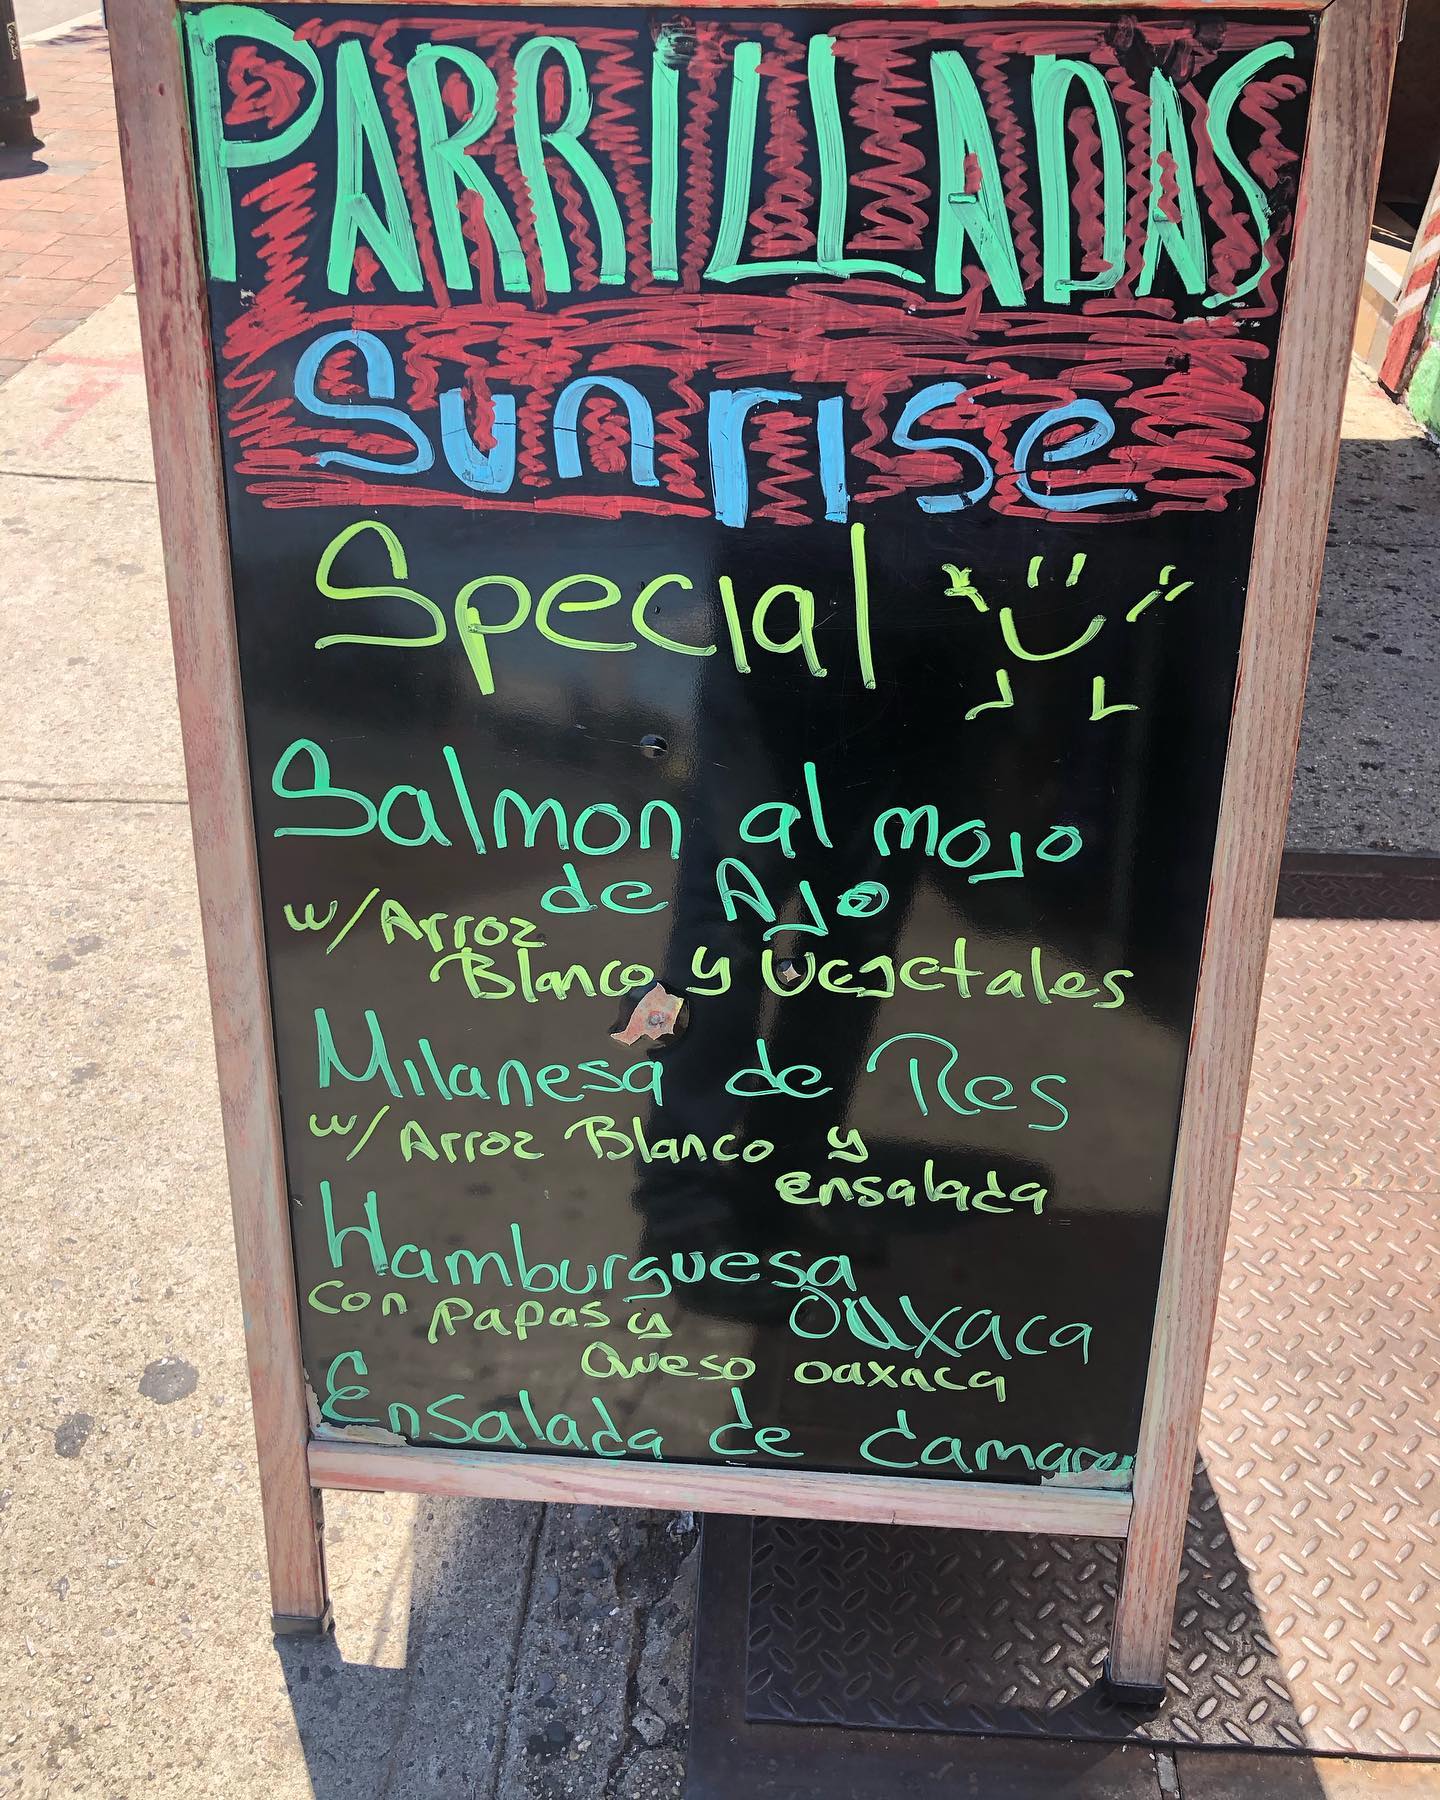 PARRILLADAS
Sunrise
Special
Salmon al mojo
de Ajo
w/Arroz
Blanco y Vegetales
Milanesa de Res
w/ Arroz Blanco y
ensalada
Hamburguesa
Oaxaca
con papas y
Queso oaxaca
Ensalada de